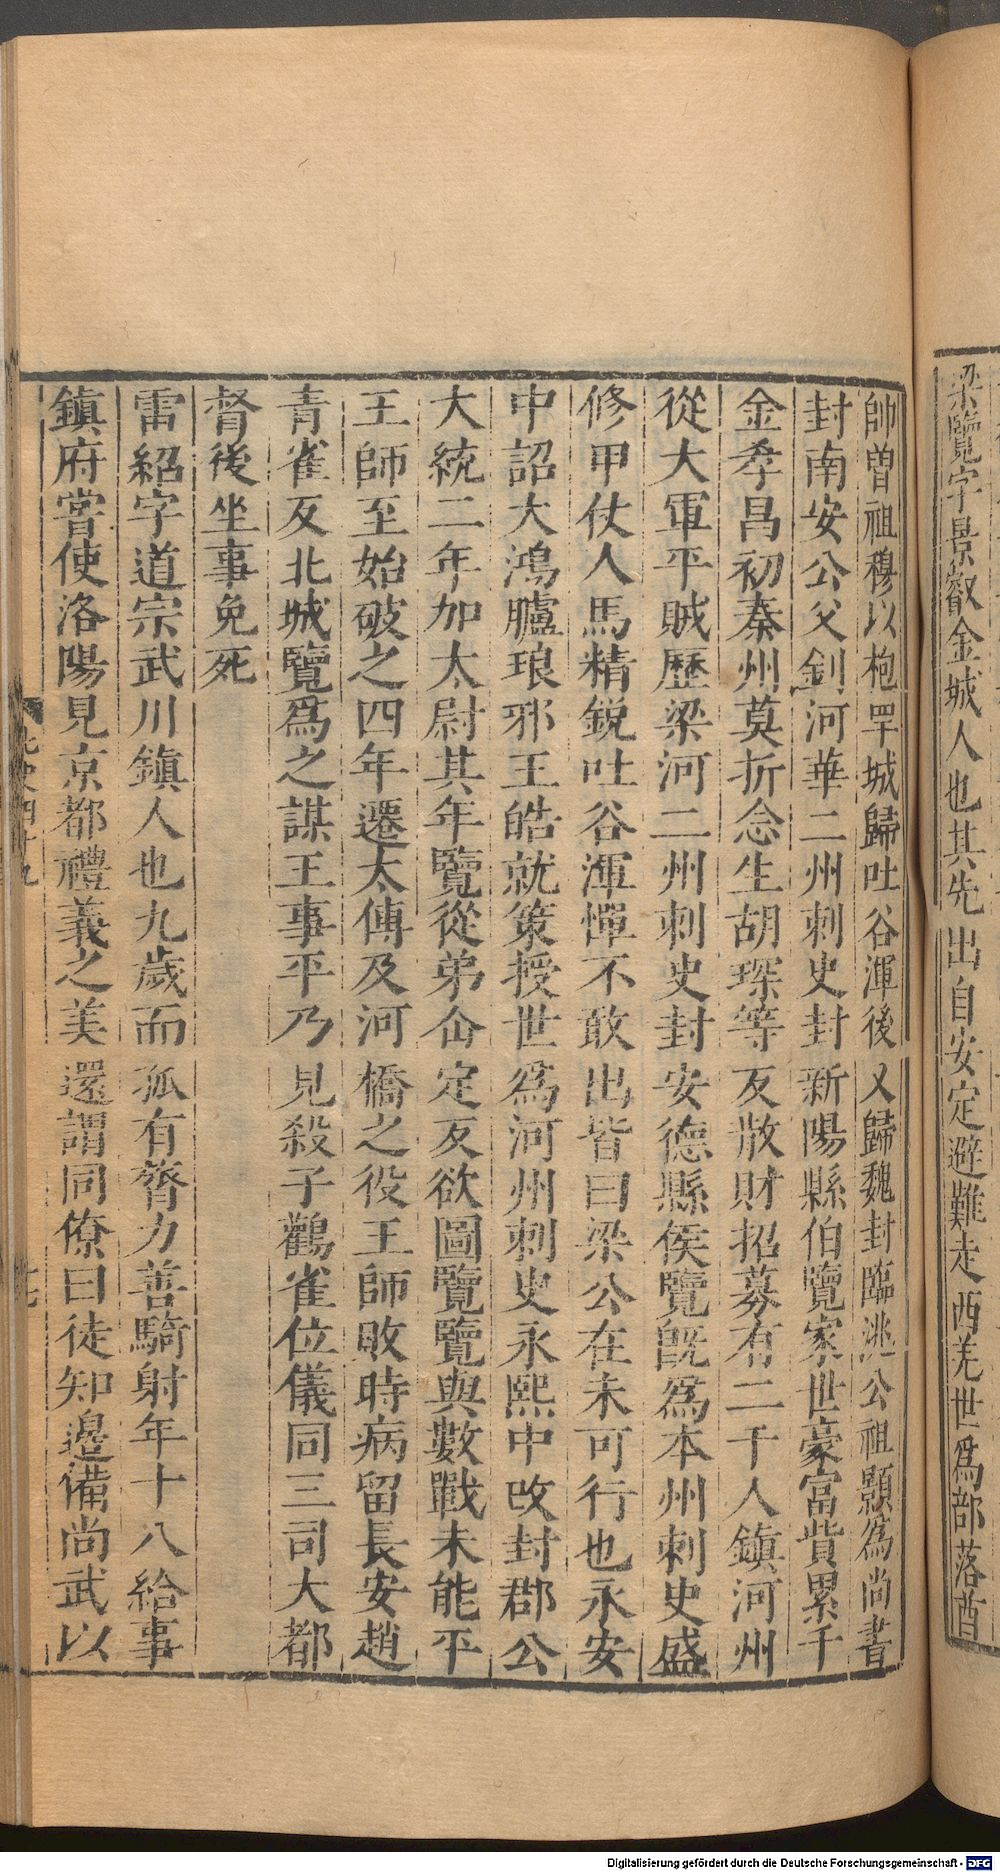 梁覽字景叡金城人也其先出自安定避難走西羌世爲部落酋
帥曽祖穆以枹罕城歸吐谷渾後又歸魏封臨洮公祖顥爲尚書
封南安公父釗河華二州刺史封新陽縣伯覽家世豪富貲累千
金孝昌初秦州莫折念生胡琛等反散財招募有二千人鎭河州
從大軍平賊歷梁河二州刺史封安德縣侯覽旣爲本州刺史盛
修甲仗人馬精銳吐谷渾憚不敢出皆曰梁公在未可行也永安
中詔大鴻臚琅邪王皓就策授世爲河州刺史永熙中改封郡公
大統二年加太尉其年覽從弟仚定反欲圖覽覽與數戰未能平
王師至始破之四年遷太傅及河橋之役王師敗時病留長安趙
青雀反北城覽爲之謀王事平乃見殺子鸛雀位儀同三司大都
督後坐事免死
雷紹字道宗武川鎭人也九歲而孤有膂力善騎射年十八給事
鎭府嘗使洛陽見京都禮義之美還謂同僚曰徒知邊備尚武以
北史四十九
Digitalisierung gefördert durch die Deutsche Forschungsgemeinschaft - DFG